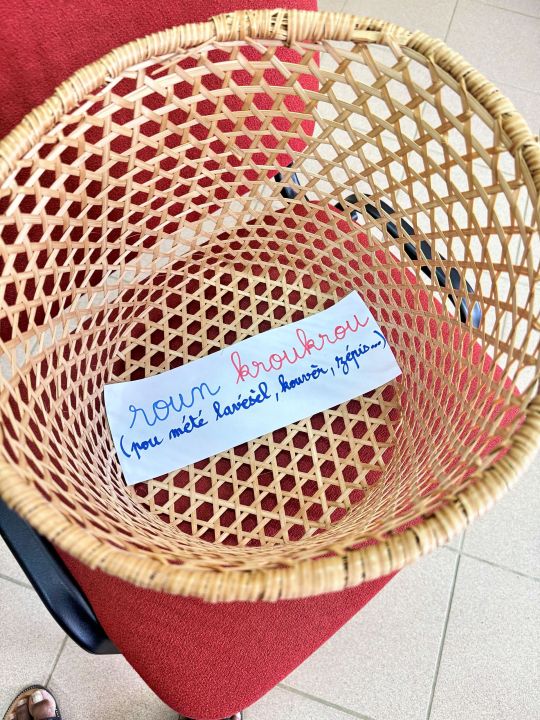 roun kroukrou
(pou mété lavèsèl, kouvèr, zépis...)